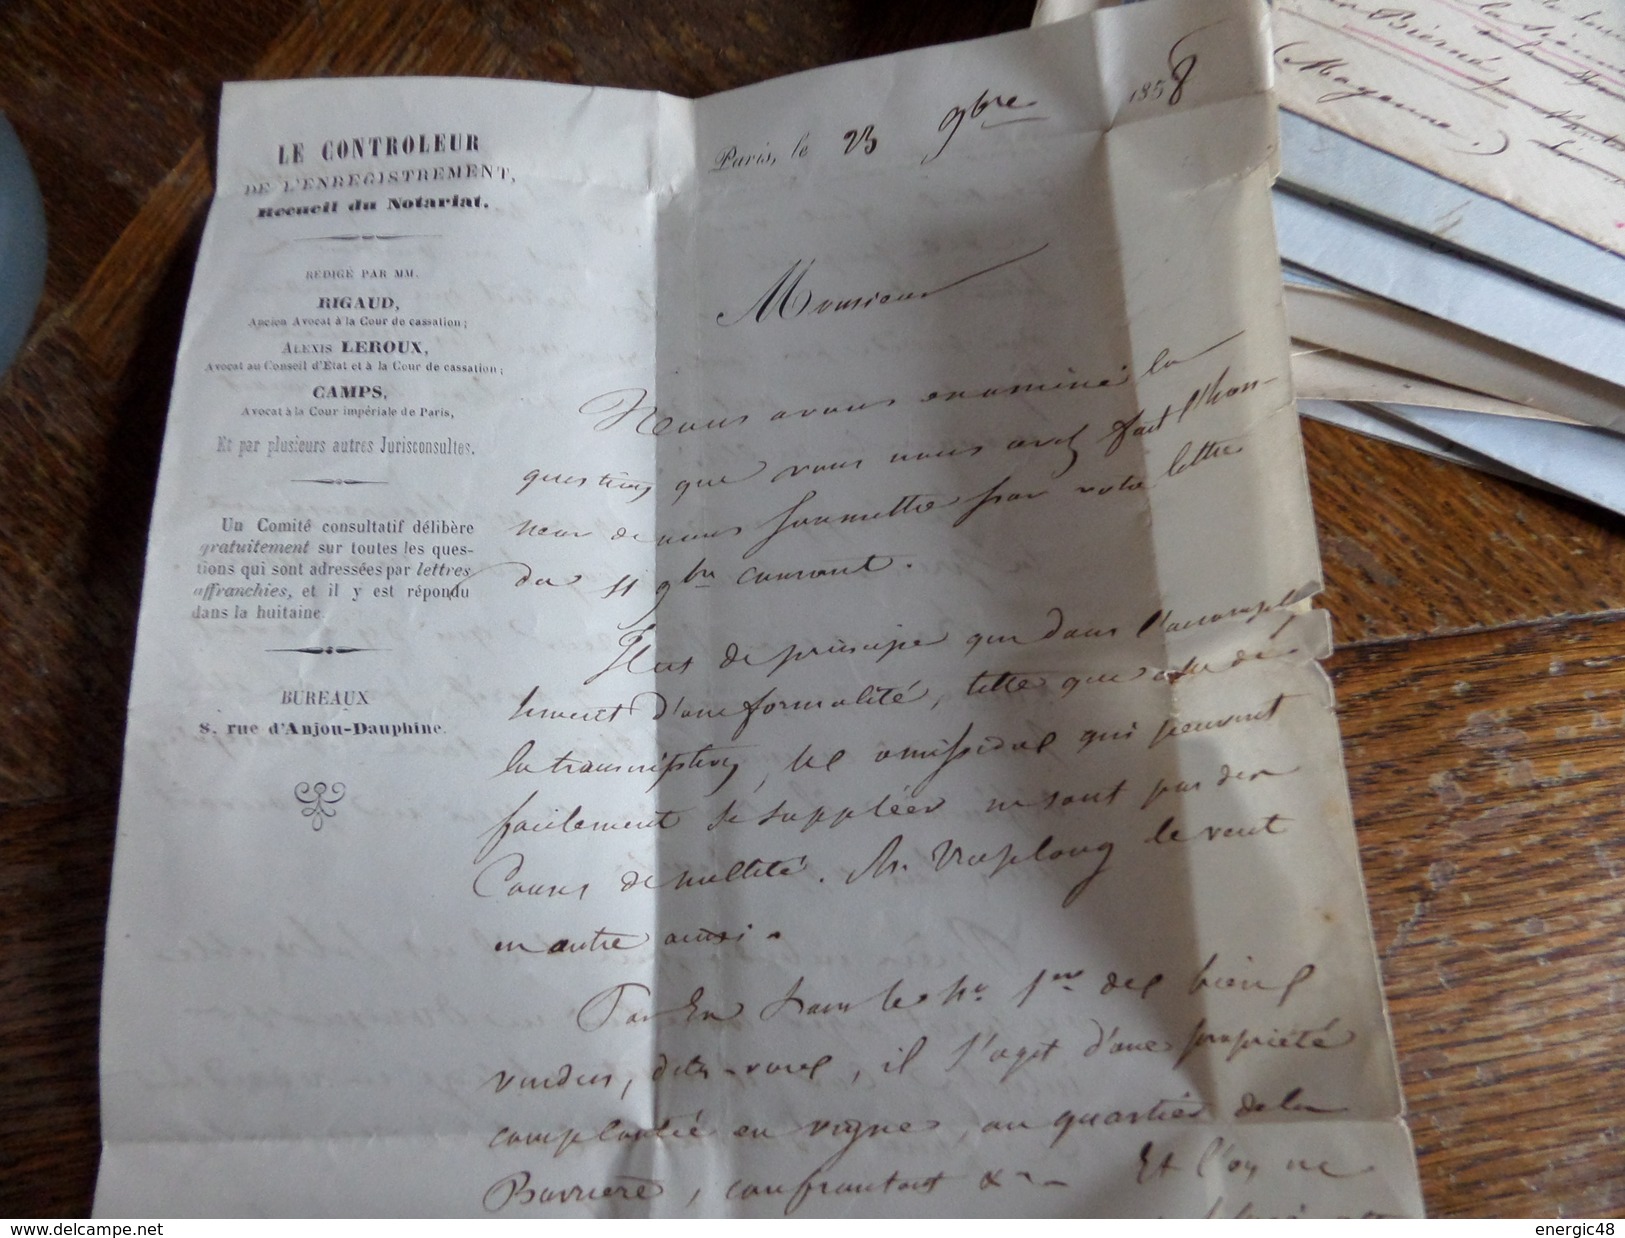 LE CONTROLEUR
DE L'ENREGISTREMENT,
Recueil du Notariat.
RÉDIGÉ PAR MM.
RIGAUD,
Ancien Avocat à la Cour de cassation;
ALEXIS LEROUX,
Avocat au Conseil d'État et à la Cour de cassation;
CAMPS,
Avocat à la Cour impériale de Paris,
Et par plusieurs autres Jurisconsultes.
Un Comité consultatif délibère
gratuitement sur toutes les ques-
tions qui sont adressées par lettres
affranchies, et il y est répondu
dans la huitaine.
BUREAUX
8, rue d'Anjou-Dauphine.
Paris, le 23 9bre 1858
Monsieur
Nous avons examiné la
question que vous nous avez fait l'hon-
neur de nous soumettre par votre lettre
du 11 9bre courant.
Il est de principe que dans l'accomplis
sement d'une formalité, telle que celle de
la transcription, les omissions qui peuvent
facilement se suppléer ne sont pas des
causes de nullité. Mr Troplong le veut
en outre ainsi.
Par Ex dans le No 1er des biens
vendus, dites-vous, il s'agit d'une propriété
complantée en vigne, au quartier de la
Barrière, confrontant &a Et l'on ne
(Mayenne)